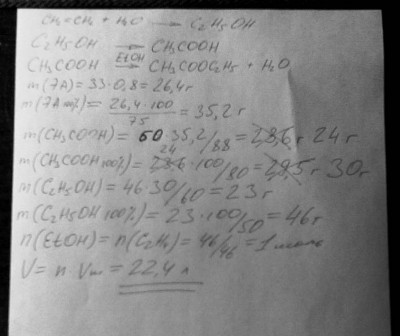 CH₂=CH₂ + H₂O → C₂H₅OH
C₂H₅OH → CH₃COOH
CH₃COOH EtOH→ CH₃COOC₂H₅ + H₂O
m(ЭА) = 33·0,8 = 26,4 г
m(ЭА 100%) = 26,4·100/75 = 35,2 г
m(CH₃COOH) = 60·35,2/88 = 28,6 г 24 г
m(CH₃COOH 100%) = 24 28,6·100/80 = 28,5 г 30 г
m(C₂H₅OH) = 46·30/60 = 23 г
m(C₂H₅OH 100%) = 23·100/50 = 46 г
n(EtOH) = n(C₂H₄) = 46/46 = 1 моль
V = n·Vm = 22,4 л